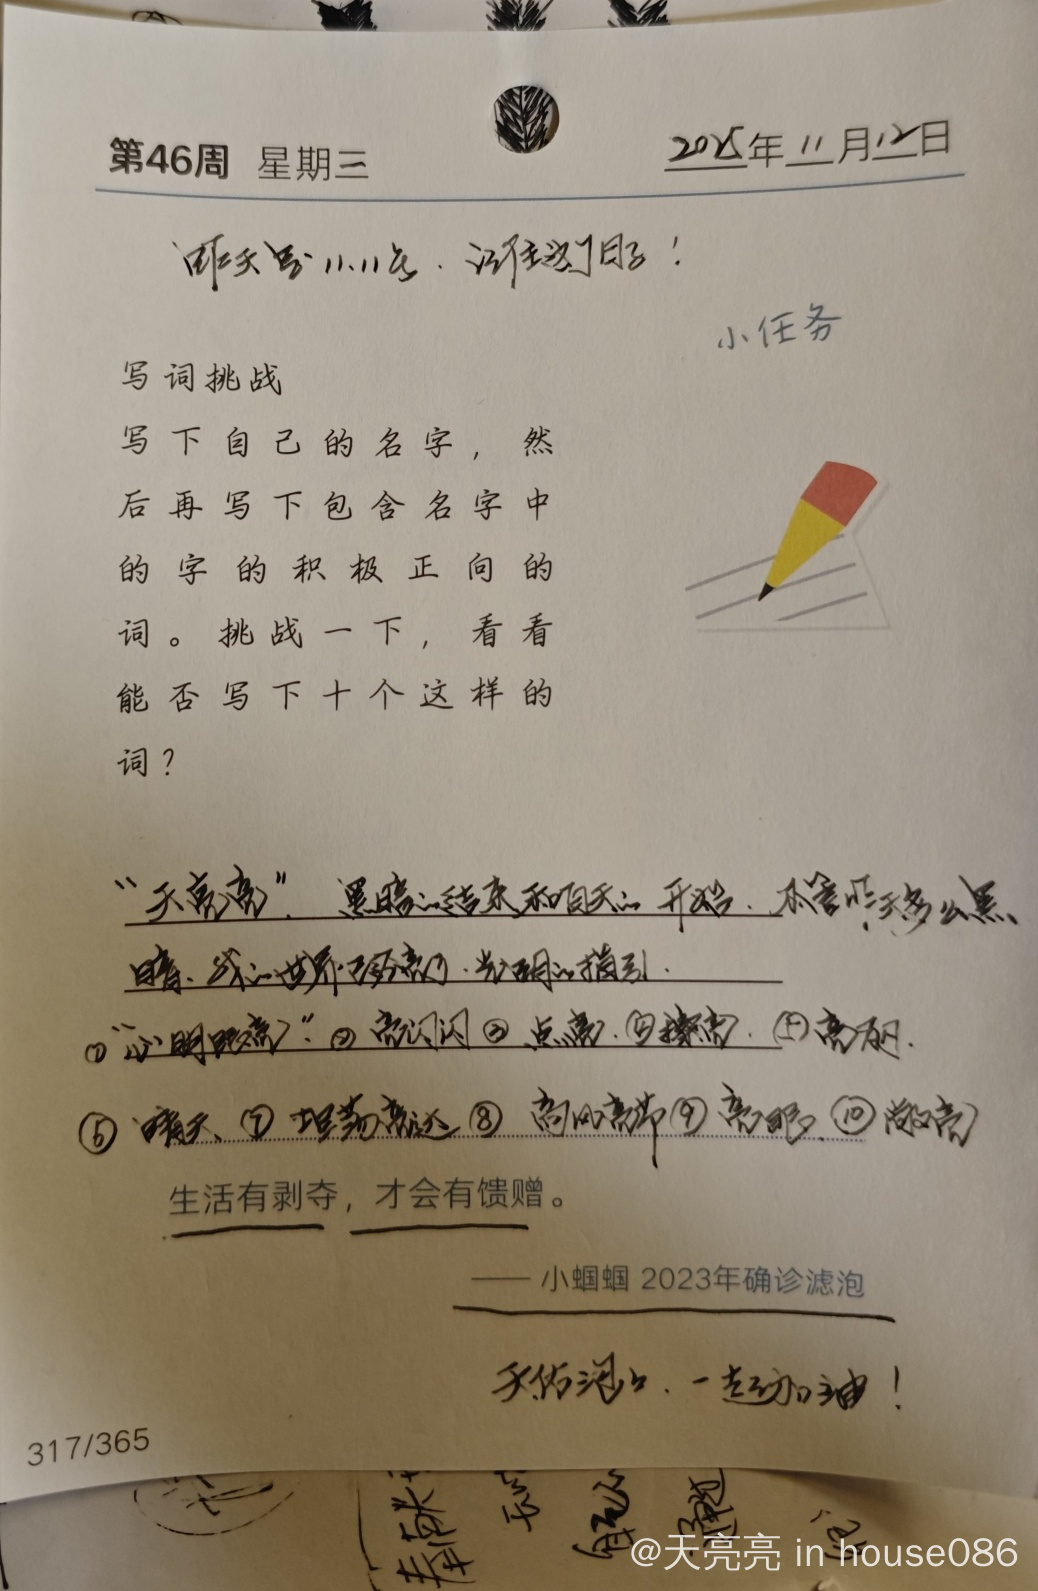 第46周 星期三
2025年11月12日
昨天 11.11 记住这个日子！
小任务
写词挑战
写下自己的名字，然
后再写下包含名字中
的字的积极正向的
词。挑战一下，看看
能否写下十个这样的
词？
“天亮亮”. 黑暗的结束和白天的开始. 不管昨天多么黑
暗. 我的世界 亮了. 光明的指引.
①“心明眼亮”. ② 亮闪闪 ③ 点亮. ④擦亮. ⑤亮丽.
⑥ 晴天、⑦ 坦荡亮达 ⑧ 高风亮节 ⑨ 亮眼. ⑩ 敞亮
生活有剥夺，才会有馈赠。
—— 小蝈蝈 2023年确诊滤泡
天佑泡泡. 一起加油！
317/365
@天亮亮 in house086